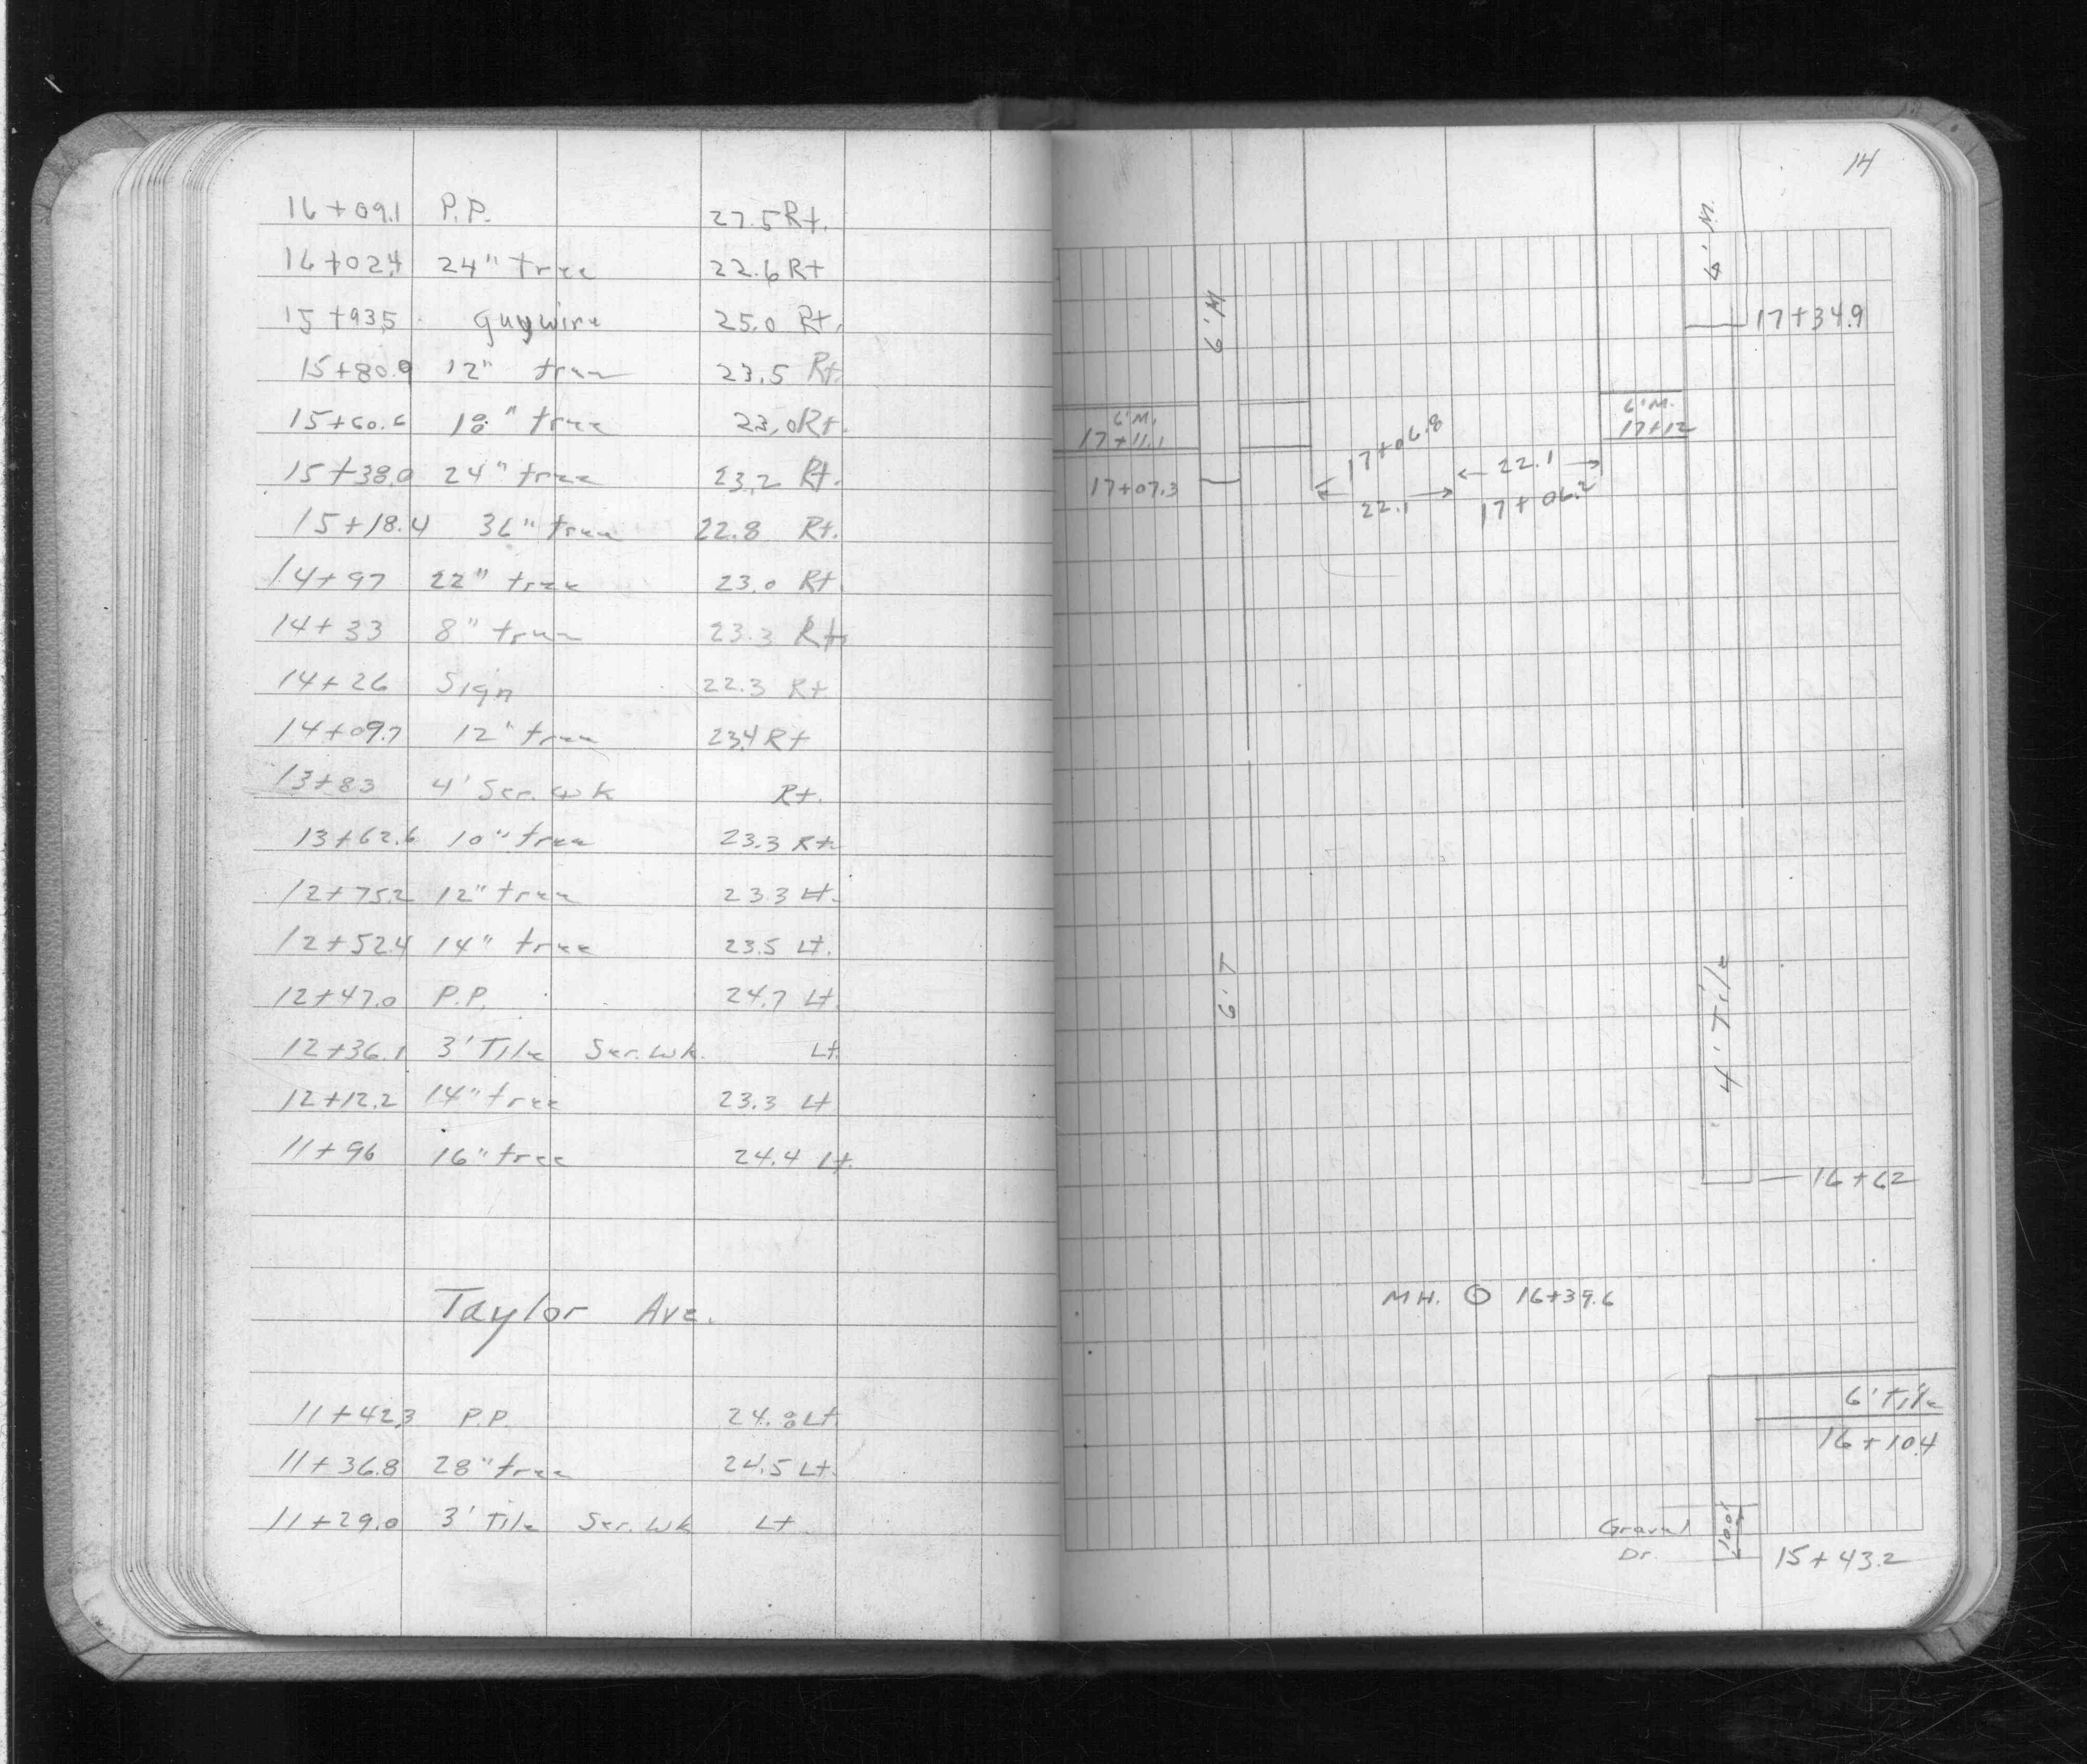 16+09.1 P.P. 27.5 Rt.
16+02.4 24" tree 22.6 Rt
15+93.5 guywire 25.0 Rt.
15+80.9 12" tree 23.5 Rt.
15+60.6 18" tree 23.0 Rt.
15+38.0 24" tree 23.2 Rt.
15+18.4 36" tree 22.8 Rt.
14+97 22" tree 23.0 Rt.
14+33 8" tree 23.3 Rt.
14+26 Sign 22.3 Rt
14+09.7 12" tree 23.4 Rt
13+83 4' Ser. wk Rt.
13+62.6 10" tree 23.3 Rt.
12+75.2 12" tree 23.3 Lt.
12+52.4 14" tree 23.5 Lt.
12+47.0 P.P. 24.7 Lt.
12+36.1 3' Tile Ser. wk. Lt.
12+12.2 14" tree 23.3 Lt
11+96 16" tree 24.4 Lt.
Taylor Ave.
11+42.3 P.P. 24.8 Lt.
11+36.8 28" tree 24.5 Lt.
11+29.0 3' Tile Ser. Wk Lt
14
6' M.
6' M.
17+34.9
6' M.
17+11.1
6' M.
17+12
17+06.8
22.1
17+07.3
22.1
17+06.2
6' T
4' Tile
16+62
MH. 16+39.6
6' Tile
16+10.4
Gravel
Dr.
10.0'
15+43.2